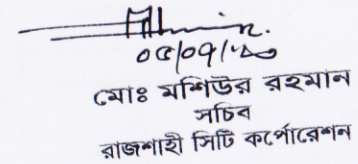 ০৫/০৭/২০
মোঃ মশিউর রহমান
সচিব
রাজশাহী সিটি কর্পোরেশন